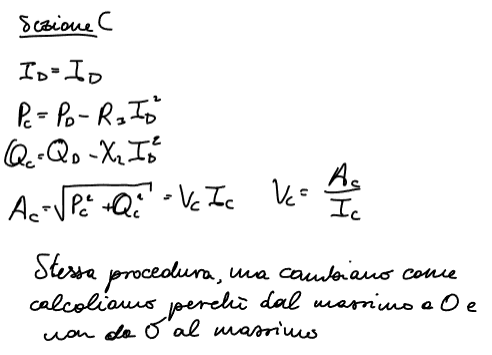 Sezione C
I_D = I_D
P_C = P_D - R_3 I_D²
Q_C = Q_D - X_2 I_D²
A_C = √(P_C² + Q_C²) = V_C I_C    V_C = A_C / I_C
Stessa procedura, ma cambiano come
calcoliamo perchè dal massimo a 0 e
non da 0 al massimo